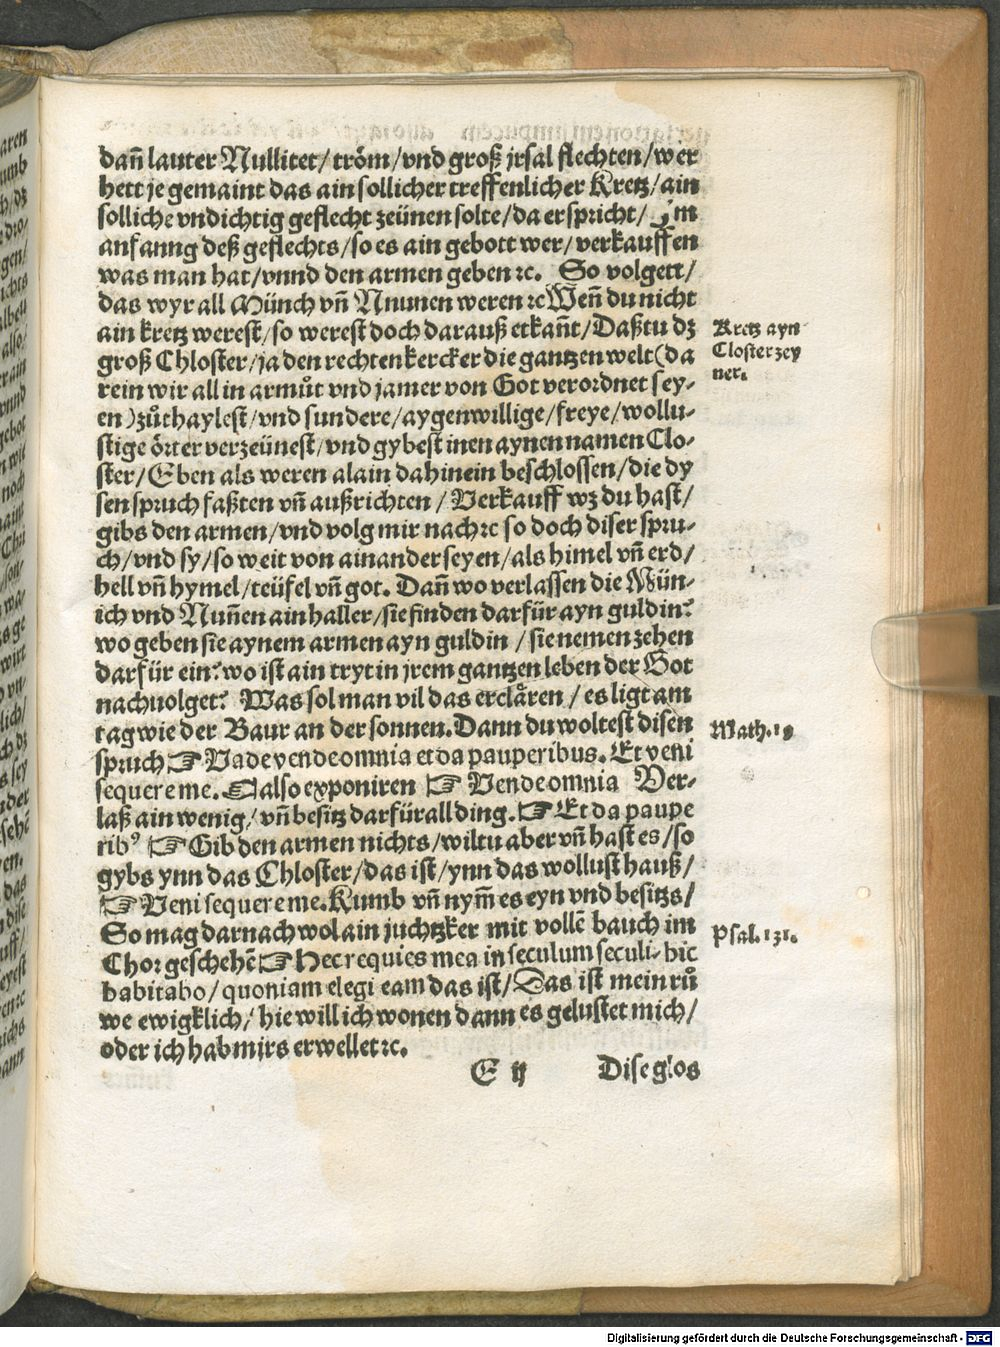 dañ lauter Nullitet/ tröm/ vnd groß jrsal flechten/ wer
hett je gemaint das ain sollicher treffenlicher Kretz/ ain
solliche vndichtig geflecht zeünen solte/ da er spricht/ Jm
anfanng deß geflechts/ so es ain gebott wer/ verkauffen
was man hat/ vnnd den armen geben ꝛc. So volgett/
das wyr all Münch vñ Nnunen weren ꝛc Weñ du nicht
ain kretz werest/ so werest doch darauß etkañt/ Daßtu dz
groß Chloster/ ja den rechten kercker die gantzen welt (da
rein wir all in armůt vnd jamer von Got verordnet sey-
en) zůthaylest/ vnd sundere/ aygenwillige/ freye/ wollu-
stige örter verzeünest/ vnd gybest inen aynen namen Clo-
ster/ Eben als weren alain dahinein beschlossen/ die dy
sen spruch faßten vñ außrichten/ Verkauff wz du hast/
gibs den armen/ vnd volg mir nach ꝛc so doch diser spru-
ch/ vnd sy/ so weit von ainander seyen/ als himel vñ erd/
hell vñ hymel/ teüfel vñ got. Dañ wo verlassen die Mün-
ich vnd Nuñen ain haller/ sie finden darfür ayn guldin?
wo geben sie aynem armen ayn guldin/ sie nemen zehen
darfür ein? wo ist ain tryt in jrem gantzen leben der Got
nachuolget? Was sol man vil das erclåren/ es ligt am
tag wie der Baur an der sonnen. Dann du woltest disen
spruch ☞ Vade vende omnia et da pauperibus. Et veni
sequere me. ⸿ also exponiren ☞ Vende omnia Ver-
laß ain wenig/ vñ besitz darfür all ding. ☞ Et da paupe
ribꝰ ☞ Gib den armen nichts/ wiltu aber vñ hast es/ so
gybs ynn das Chloster/ das ist/ ynn das wollust hauß/
☞ Veni sequere me. Kumb vñ nym̃ es eyn vnd besitzs/
So mag darnach wol ain juchtzker mit vollẽ bauch im
Chor geschehẽ ☞ Hec requies mea in seculum seculi. hic
habitabo/ quoniam elegi eam das ist/ Das ist mein rů
we ewigklich/ hie will ich wonen dann es gelustet mich/
oder ich hab mirs erwellet ꝛc.
E ij Dise glos
Kretz ayn
Closter zey
ner.
Math. 19
Psal. 131.
Digitalisierung gefördert durch die Deutsche Forschungsgemeinschaft - DFG